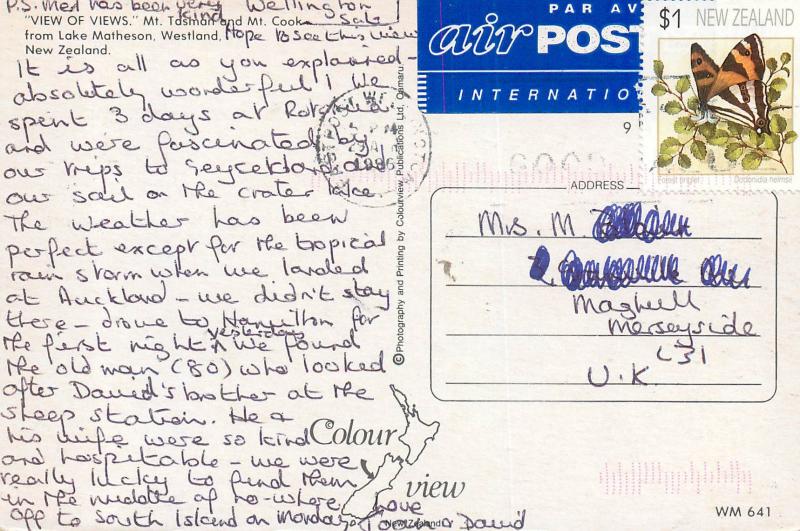 P.S. Med has been very kind
Wellington
Sat
"VIEW OF VIEWS." Mt. Tasman and Mt. Cook
from Lake Matheson, Westland,
New Zealand.
Hope to see this view
It is all as you explained -
absolutely wonderful! We
spent 3 days at Rotorua
and were fascinated by
our trips to geysers and
our sail on the crater lake.
The weather has been
perfect except for the tropical
rain storm when we landed
at Auckland - we didn't stay
there - drove to Hamilton for
the first night. Yesterday we found
the old man (80) who looked
after David's brother at the
sheep station. He &
his wife were so kind
and hospitable - we were
really lucky to find them
in the middle of no-where
Off to South Island on Monday
Love
David
© Photography and Printing by Colourview Publications Ltd, Oamaru
Colour
view
New Zealand
PAR AV
air POST
INTERNATIO
$1 NEW ZEALAND
Forest ringlet
Dodonidia helmsi
1996
9
ADDRESS
Mrs. M.
Maghull
Merseyside
L31
U.K
WM 641